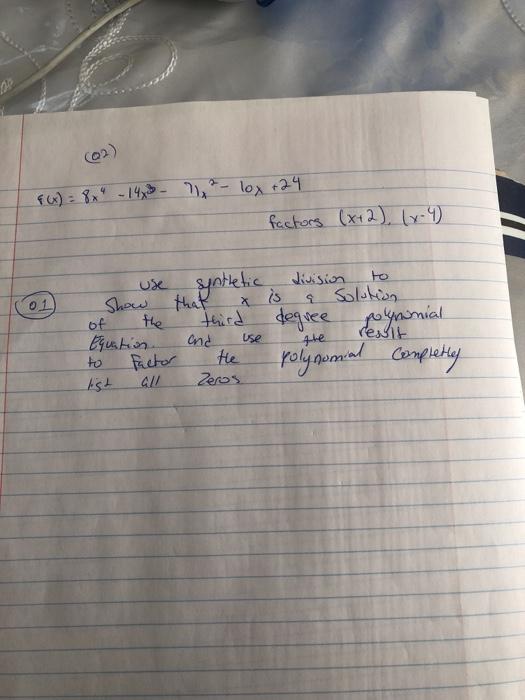 (02)
f(x) = 8x⁴ - 14x³ - 71x² - 10x + 24
factors (x+2), (x-4)
Q1 use synthetic division to
show that x is a solution
of the third degree polynomial
Equation. and use the result
to Factor the polynomial completely
list all Zeros